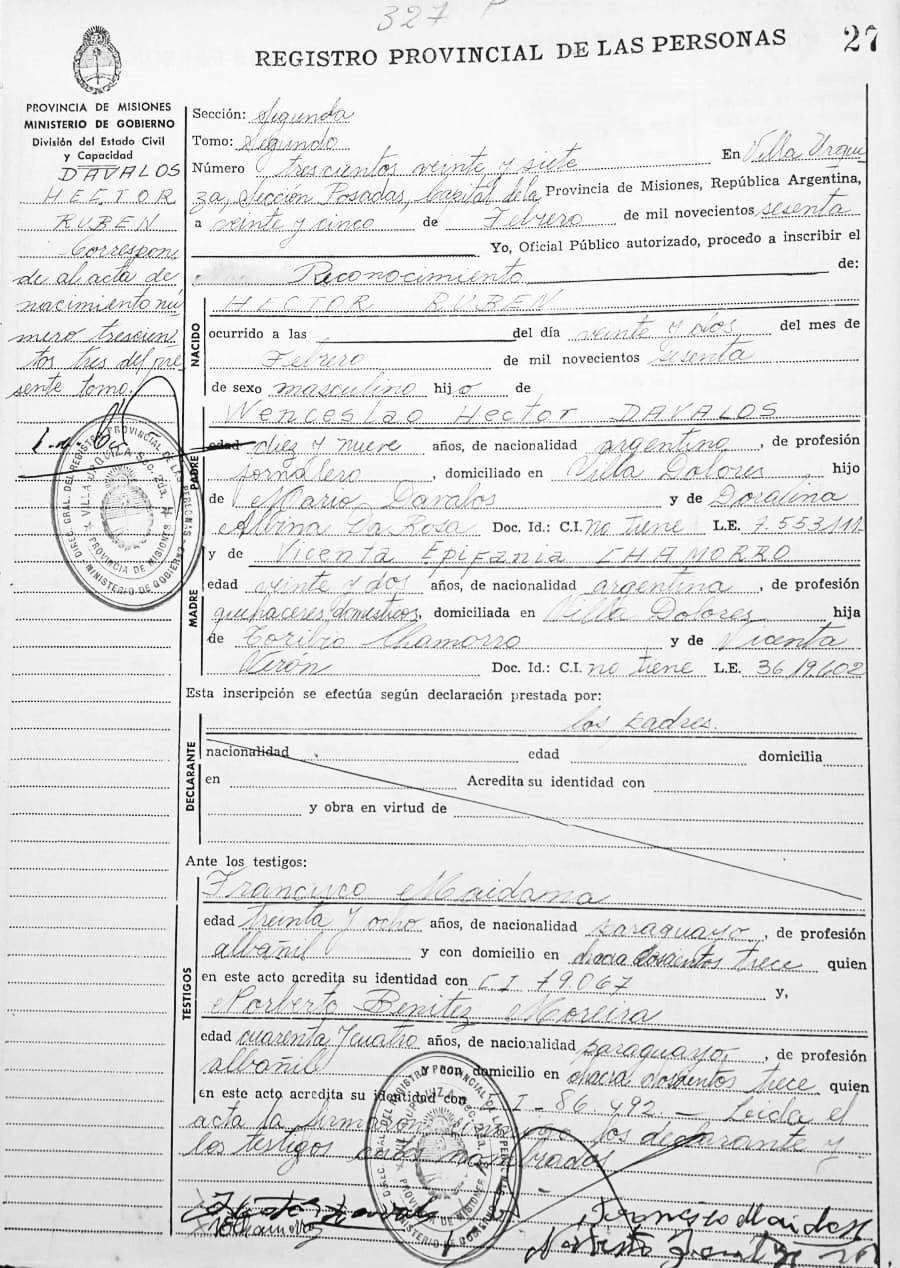 327 P
27
REGISTRO PROVINCIAL DE LAS PERSONAS
PROVINCIA DE MISIONES
MINISTERIO DE GOBIERNO
División del Estado Civil
y Capacidad
DAVALOS
HECTOR
RUBEN
Correspon
de al acta de
nacimiento nú
mero trescien
tos tres del pre
sente tomo.
DIREC. GRAL. DEL REGISTRO PROVINCIAL DE LAS PERSONAS
MINISTERIO DE GOBIERNO
VILLA URQUIZA SEC. 2da.
PROVINCIA DE MISIONES
Sección: Segunda
Tomo: Segundo
Número trescientos veinte y siete En Villa Urqui
za, Sección Posadas, Capital de la Provincia de Misiones, República Argentina,
a veinte y cinco de Febrero de mil novecientos sesenta
Yo, Oficial Público autorizado, procedo a inscribir el
Reconocimiento de:
NACIDO
HECTOR RUBEN
ocurrido a las del día veinte y dos del mes de
Febrero de mil novecientos sesenta
de sexo masculino hijo de
PADRE
Wenceslao Hector DAVALOS
edad diez y nueve años, de nacionalidad argentina, de profesión
jornalero, domiciliado en Villa Dolores hijo
de Mario Davalos y de Doralina
Albina Da Rosa Doc. Id.: C.I. no tiene L.E. 7.553.111
y de Vicenta Epifania CHAMORRO
MADRE
edad veinte y dos años, de nacionalidad argentina, de profesión
quehaceres domésticos, domiciliada en Villa Dolores hija
de Toribio Chamorro y de Vicenta
Verón Doc. Id.: C.I. no tiene L.E. 3619.602
Esta inscripción se efectúa según declaración prestada por:
DECLARANTE
los padres.
nacionalidad edad domicilia
en Acredita su identidad con
y obra en virtud de
Ante los testigos:
TESTIGOS
Francisco Maidana
edad treinta y ocho años, de nacionalidad paraguayo, de profesión
albañil y con domicilio en chacra doscientos trece quien
en este acto acredita su identidad con C I 79.067 y,
Norberto Benitez Moreira
edad cuarenta y cuatro años, de nacionalidad paraguayo, de profesión
albañil y con domicilio en chacra doscientos trece quien
en este acto acredita su identidad con C I - 86.492 - Leída el
acta la firman conmigo los declarante y
los testigos nombrados
DIREC. GRAL. DEL REGISTRO PROVINCIAL DE LAS PERSONAS
MINISTERIO DE GOBIERNO
VILLA URQUIZA SEC. 2da.
PROVINCIA DE MISIONES
Chamorro
Francisco Maidana
Norberto Benitez